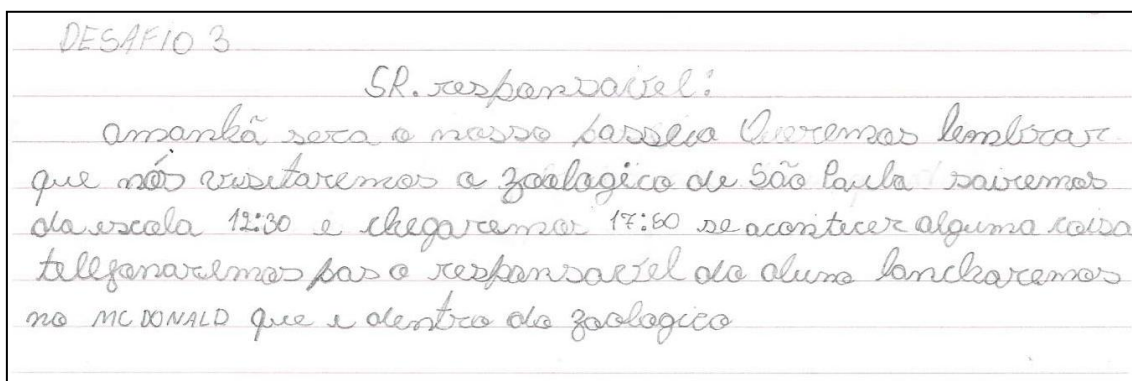 DESAFIO 3
SR. responsavel:
amanhã sera o nosso passeio Queremos lembrar
que nós visitaremos o zoologico de São Paulo sairemos
da escola 12:30 e chegaremos 17:60 se acontecer alguma coisa
telefonaremos pas o responsavel do aluno lancharemos
no MCDONALD que e dentro do zoologico